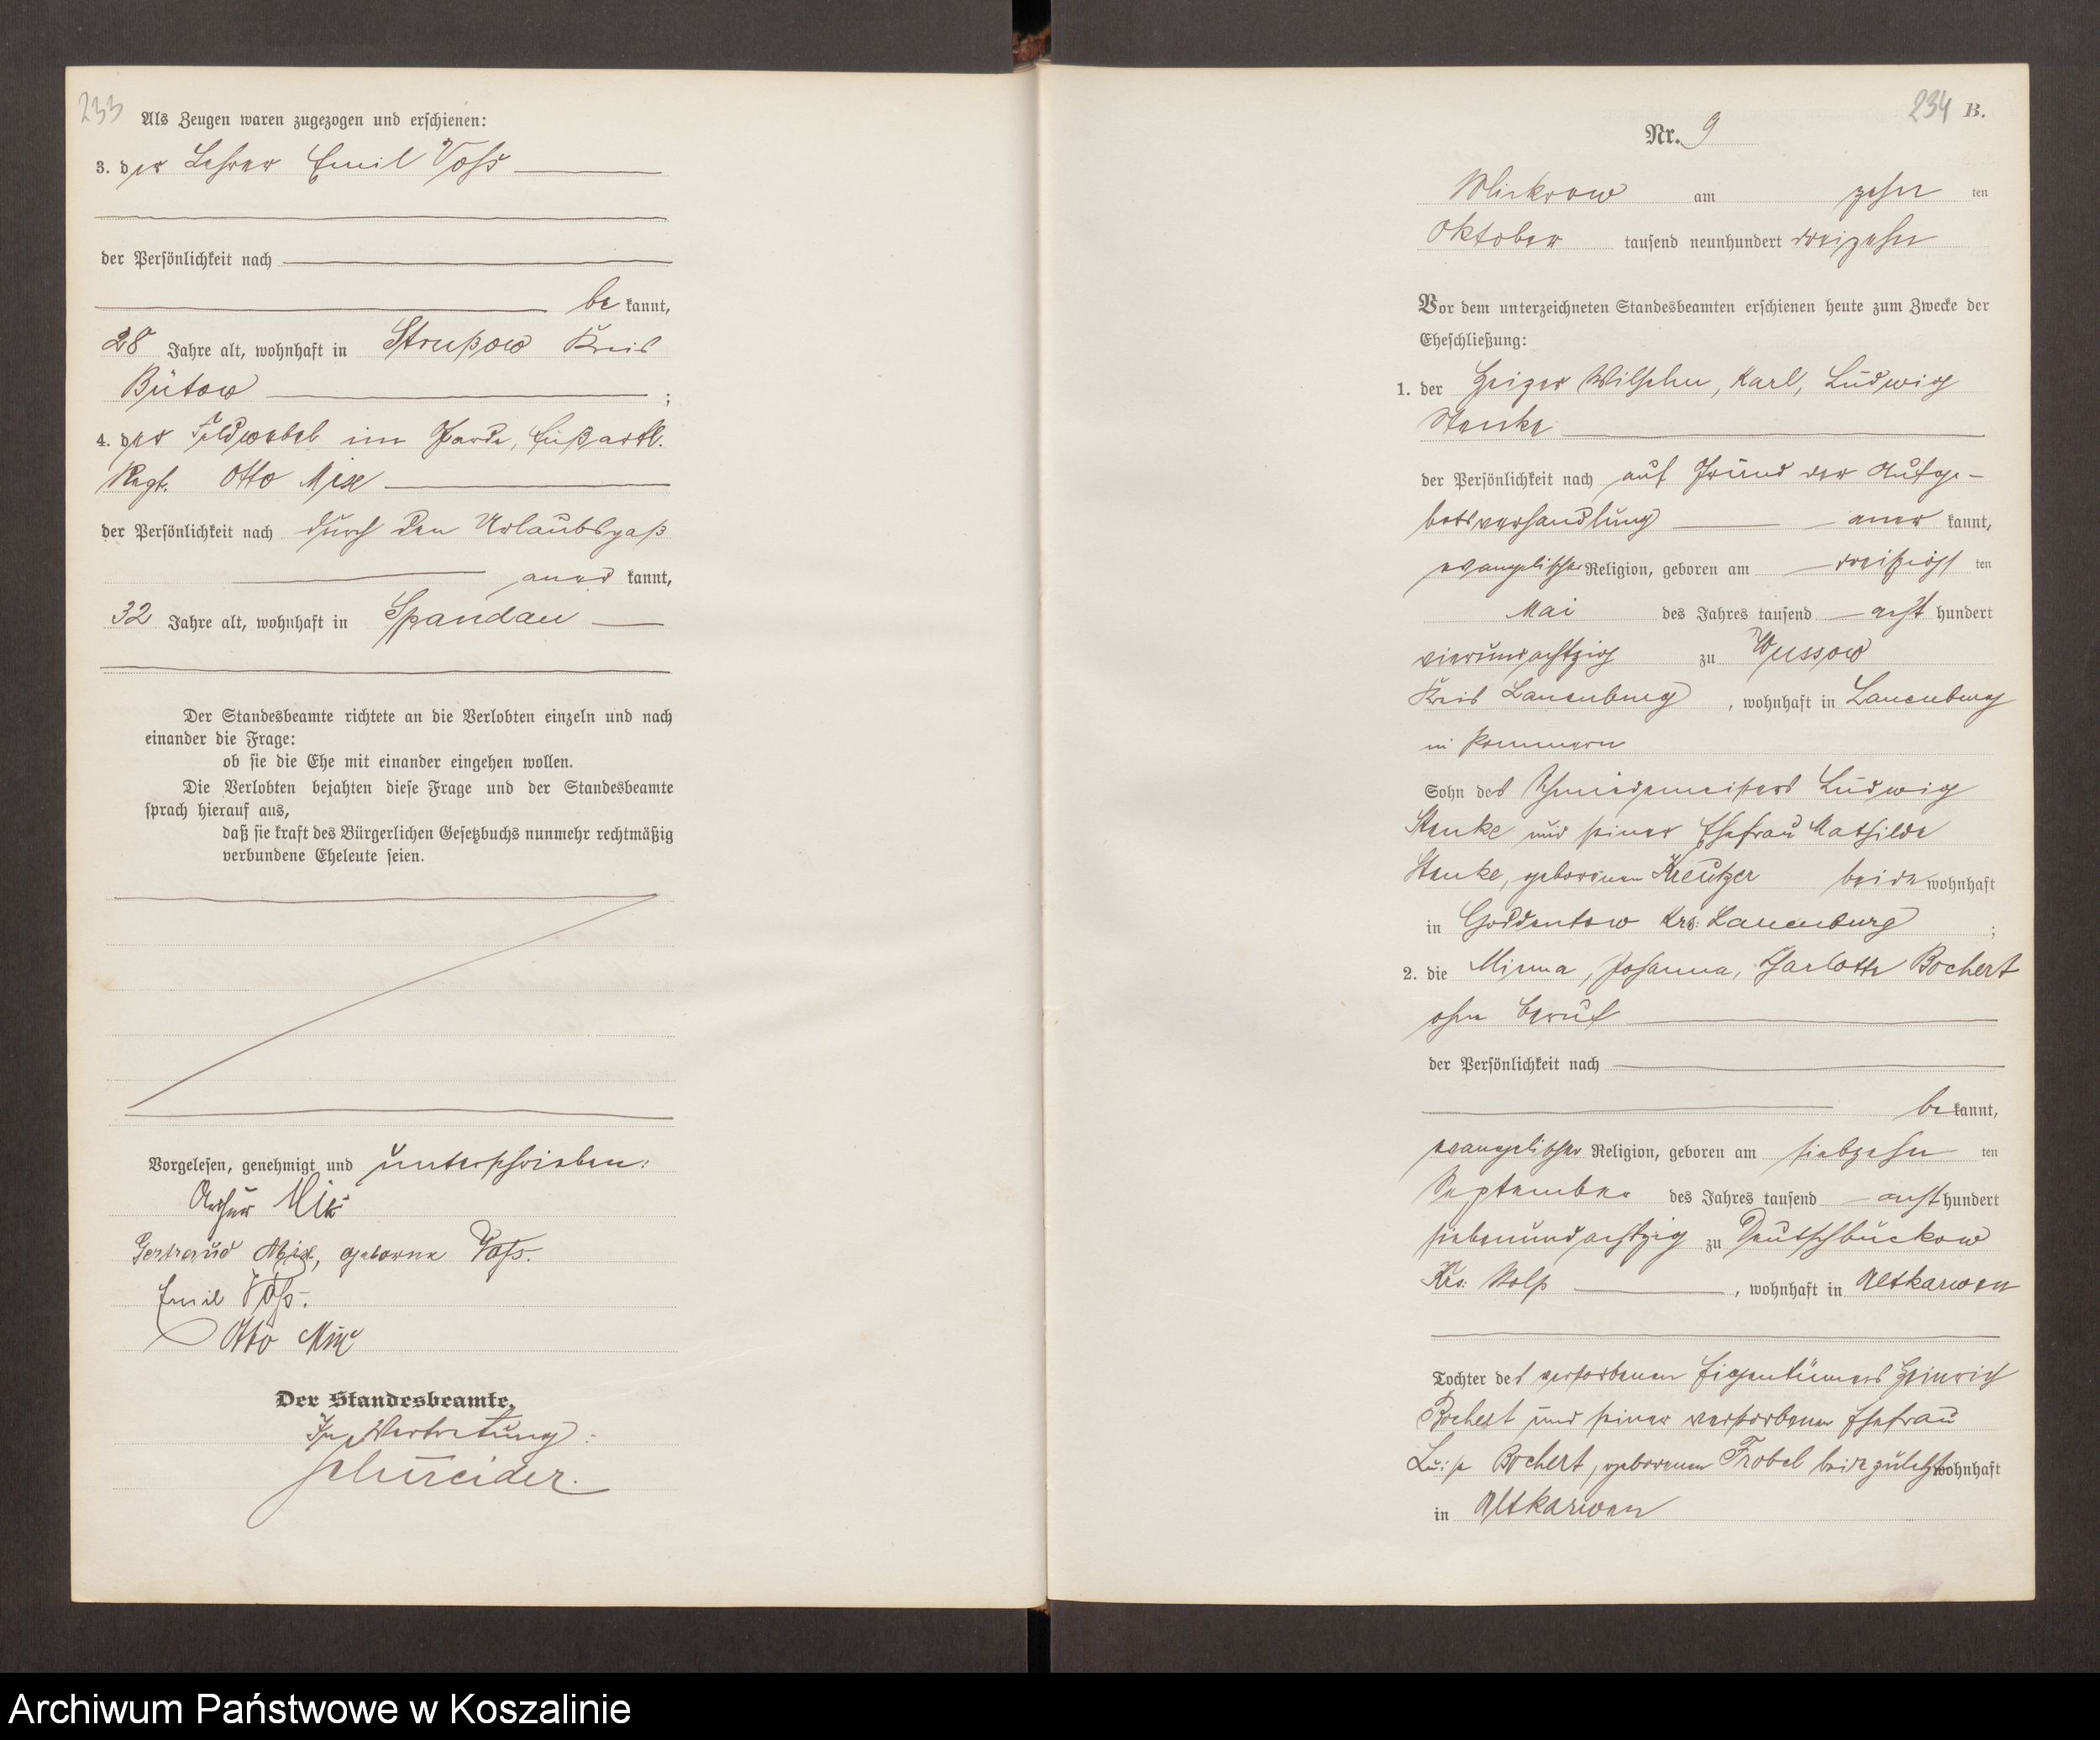 233
Als Zeugen waren zugezogen und erschienen:
3. der Lehrer Emil Voß
der Persönlichkeit nach
be kannt,
28 Jahre alt, wohnhaft in Strußow Kreis
Bütow ;
4. der Feldwebel im Garde, Fußartl.
Regt. Otto Mix
der Persönlichkeit nach durch den Urlaubspaß
aner kannt,
32 Jahre alt, wohnhaft in Spandau
Der Standesbeamte richtete an die Verlobten einzeln und nach
einander die Frage:
ob sie die Ehe mit einander eingehen wollen.
Die Verlobten bejahten diese Frage und der Standesbeamte
sprach hierauf aus,
daß sie kraft des Bürgerlichen Gesetzbuchs nunmehr rechtmäßig
verbundene Eheleute seien.
Vorgelesen, genehmigt und unterschrieben:
Arthur Mix
Gertraud Mix, geborne Voß.
Emil Voß.
Otto Mix
Der Standesbeamte.
In Vertretung:
Schneider.
234 B.
Nr. 9
Mickrow am zehn ten
Oktober tausend neunhundert dreizehn
Vor dem unterzeichneten Standesbeamten erschienen heute zum Zwecke der
Eheschließung:
1. der Heizer Wilhelm, Karl, Ludwig
Stenke
der Persönlichkeit nach auf Grund der Aufge-
botsverhandlung aner kannt,
evangelischer Religion, geboren am dreißigst ten
Mai des Jahres tausend acht hundert
vierundachtzig zu Wussow
Kreis Lauenburg , wohnhaft in Lauenburg
in Pommern
Sohn des Schmiedemeisters Ludwig
Stenke und seiner Ehefrau Mathilde
Stenke, geborenen Kreutzer beide wohnhaft
in Goddentow Krs: Lauenburg ;
2. die Minna, Johanna, Charlotte Bochert
ohne Beruf
der Persönlichkeit nach
be kannt,
evangelischer Religion, geboren am siebzehn ten
September des Jahres tausend acht hundert
siebenundachtzig zu Deutschbuckow
Krs: Stolp , wohnhaft in Altkarwen
Tochter des verstorbenen Eigentümers Heinrich
Bochert und seiner verstorbenen Ehefrau
Luise Bochert, geborenen Frobel beide zuletzt wohnhaft
in Altkarwen
Archiwum Państwowe w Koszalinie